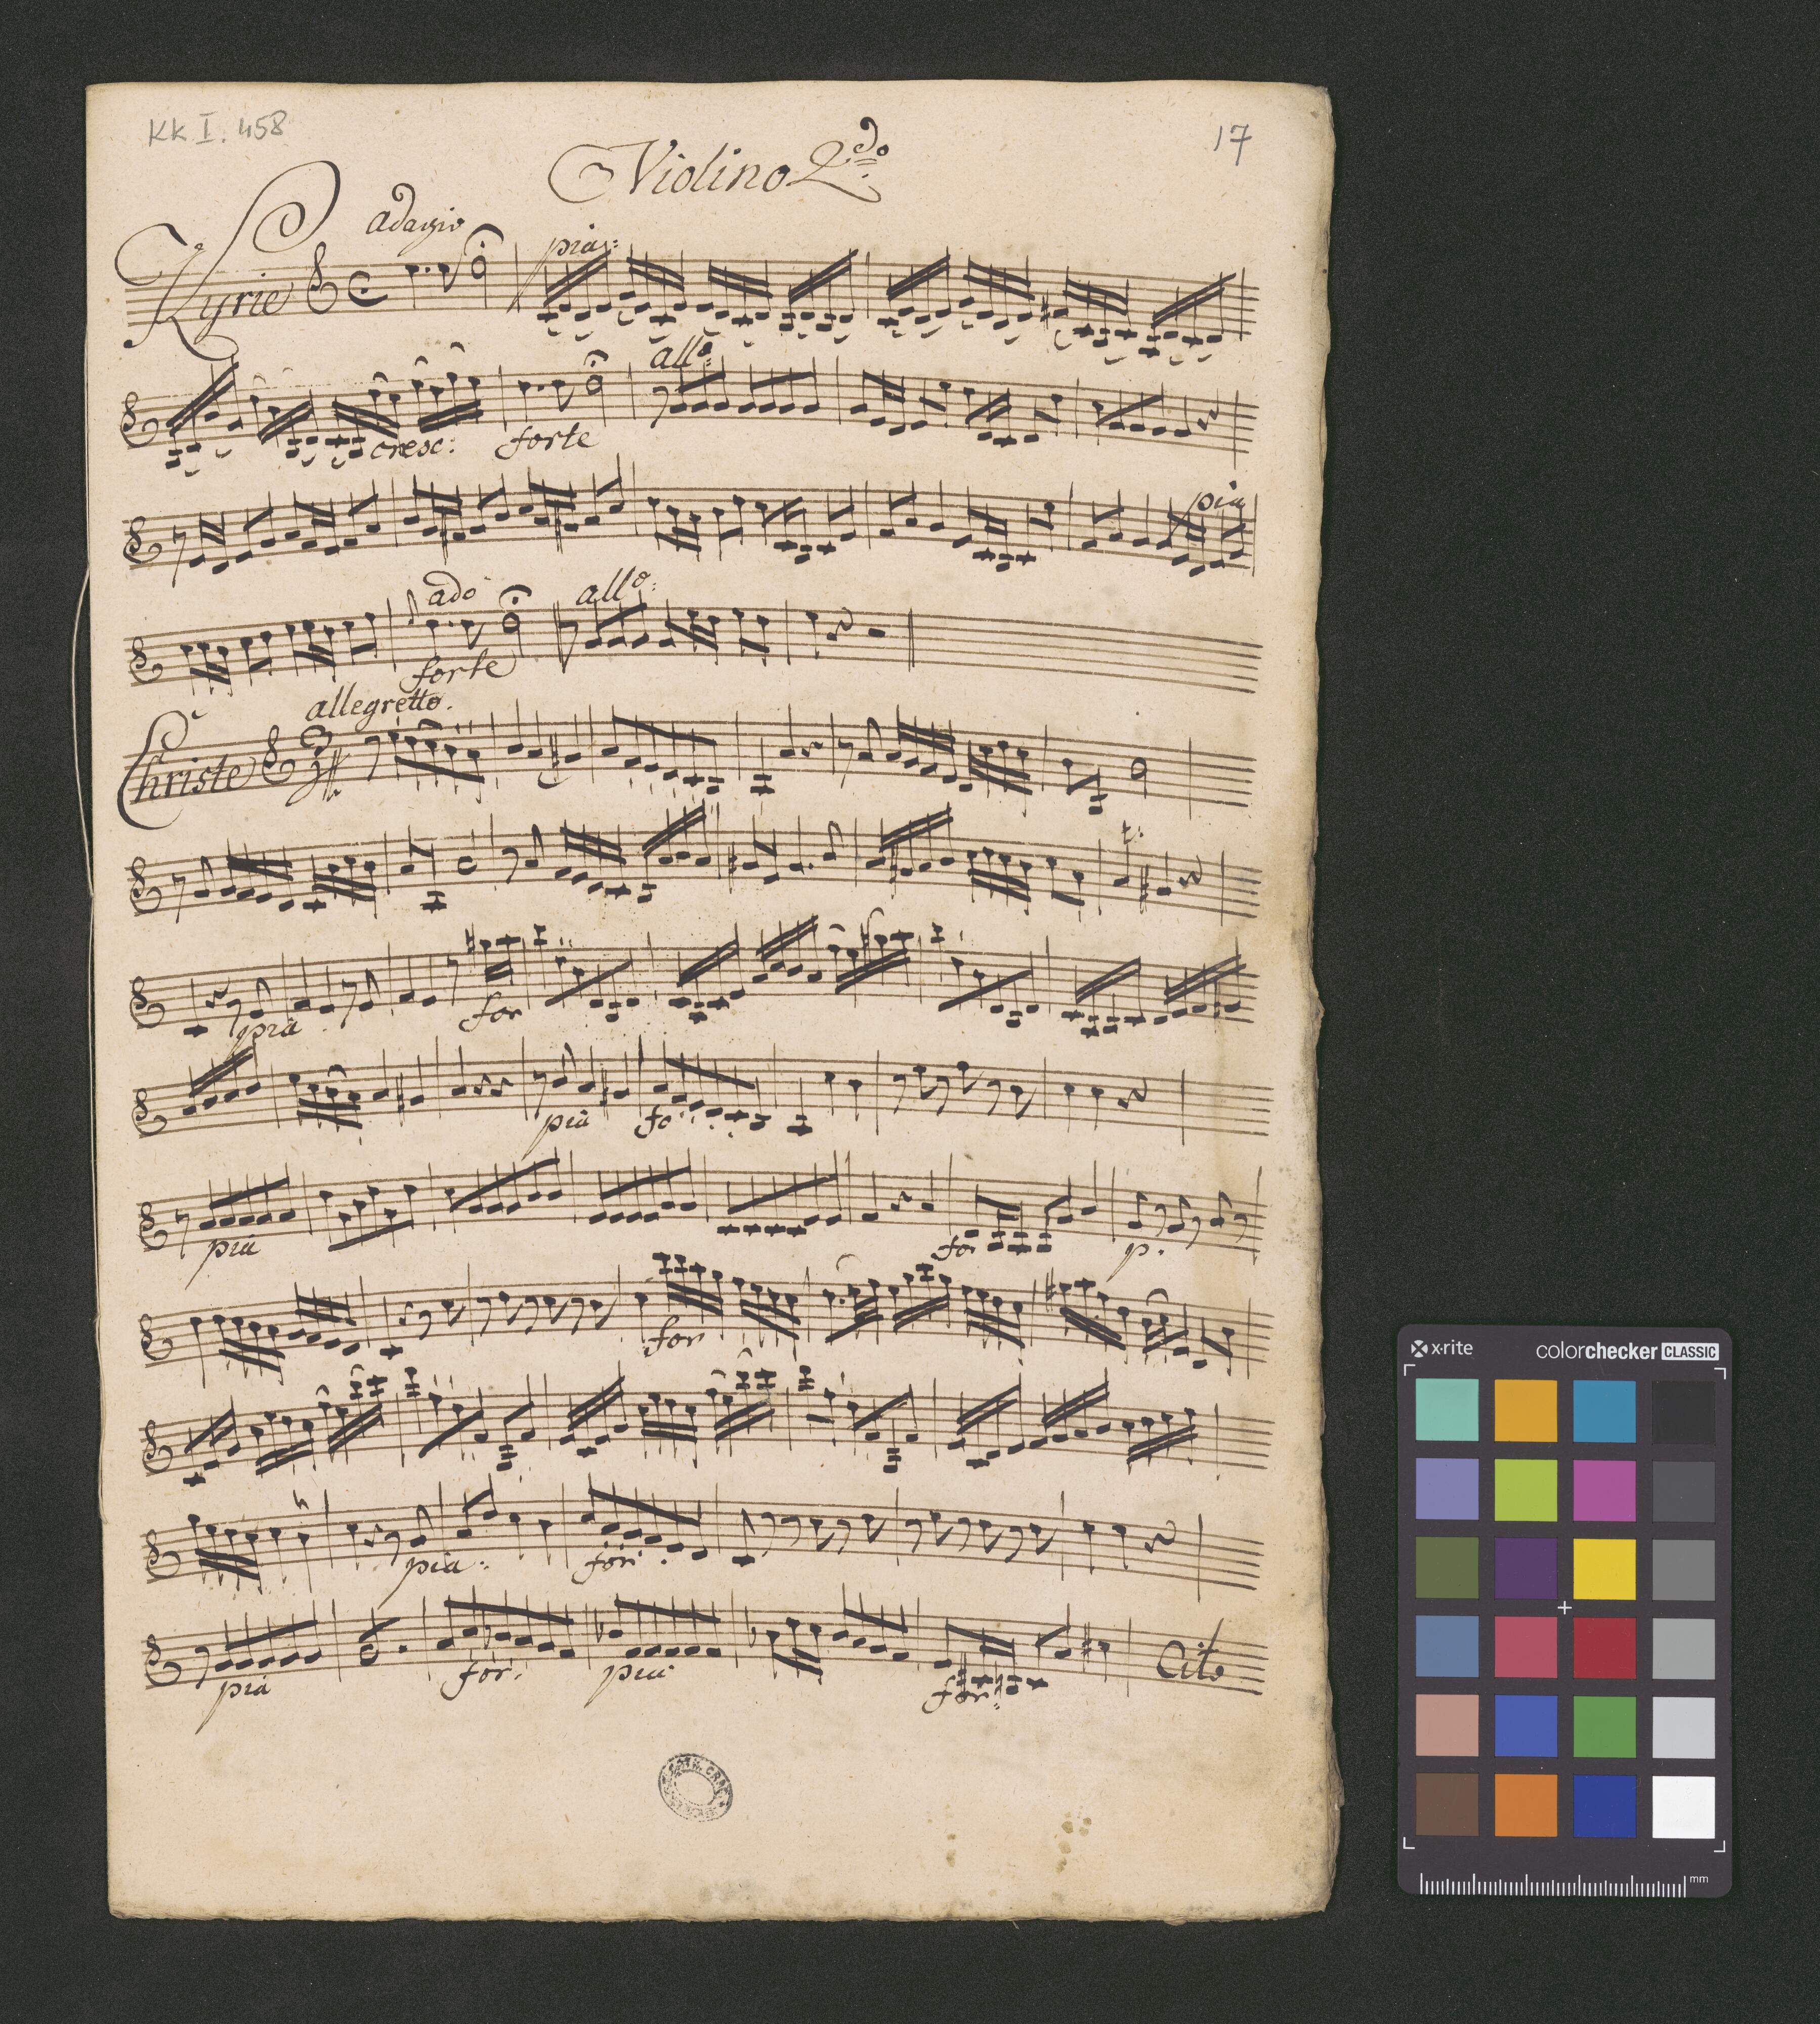 KK I. 458
17
Violino 2do
adagio
pia:
Kyrie
allo:
cresc: forte
pia
ado allo:
forte
allegretto.
Christe
t:
pia for
pia fo
pia for p.
for
pia: for
pia for: pia for:
Cito
x-rite colorchecker CLASSIC
mm